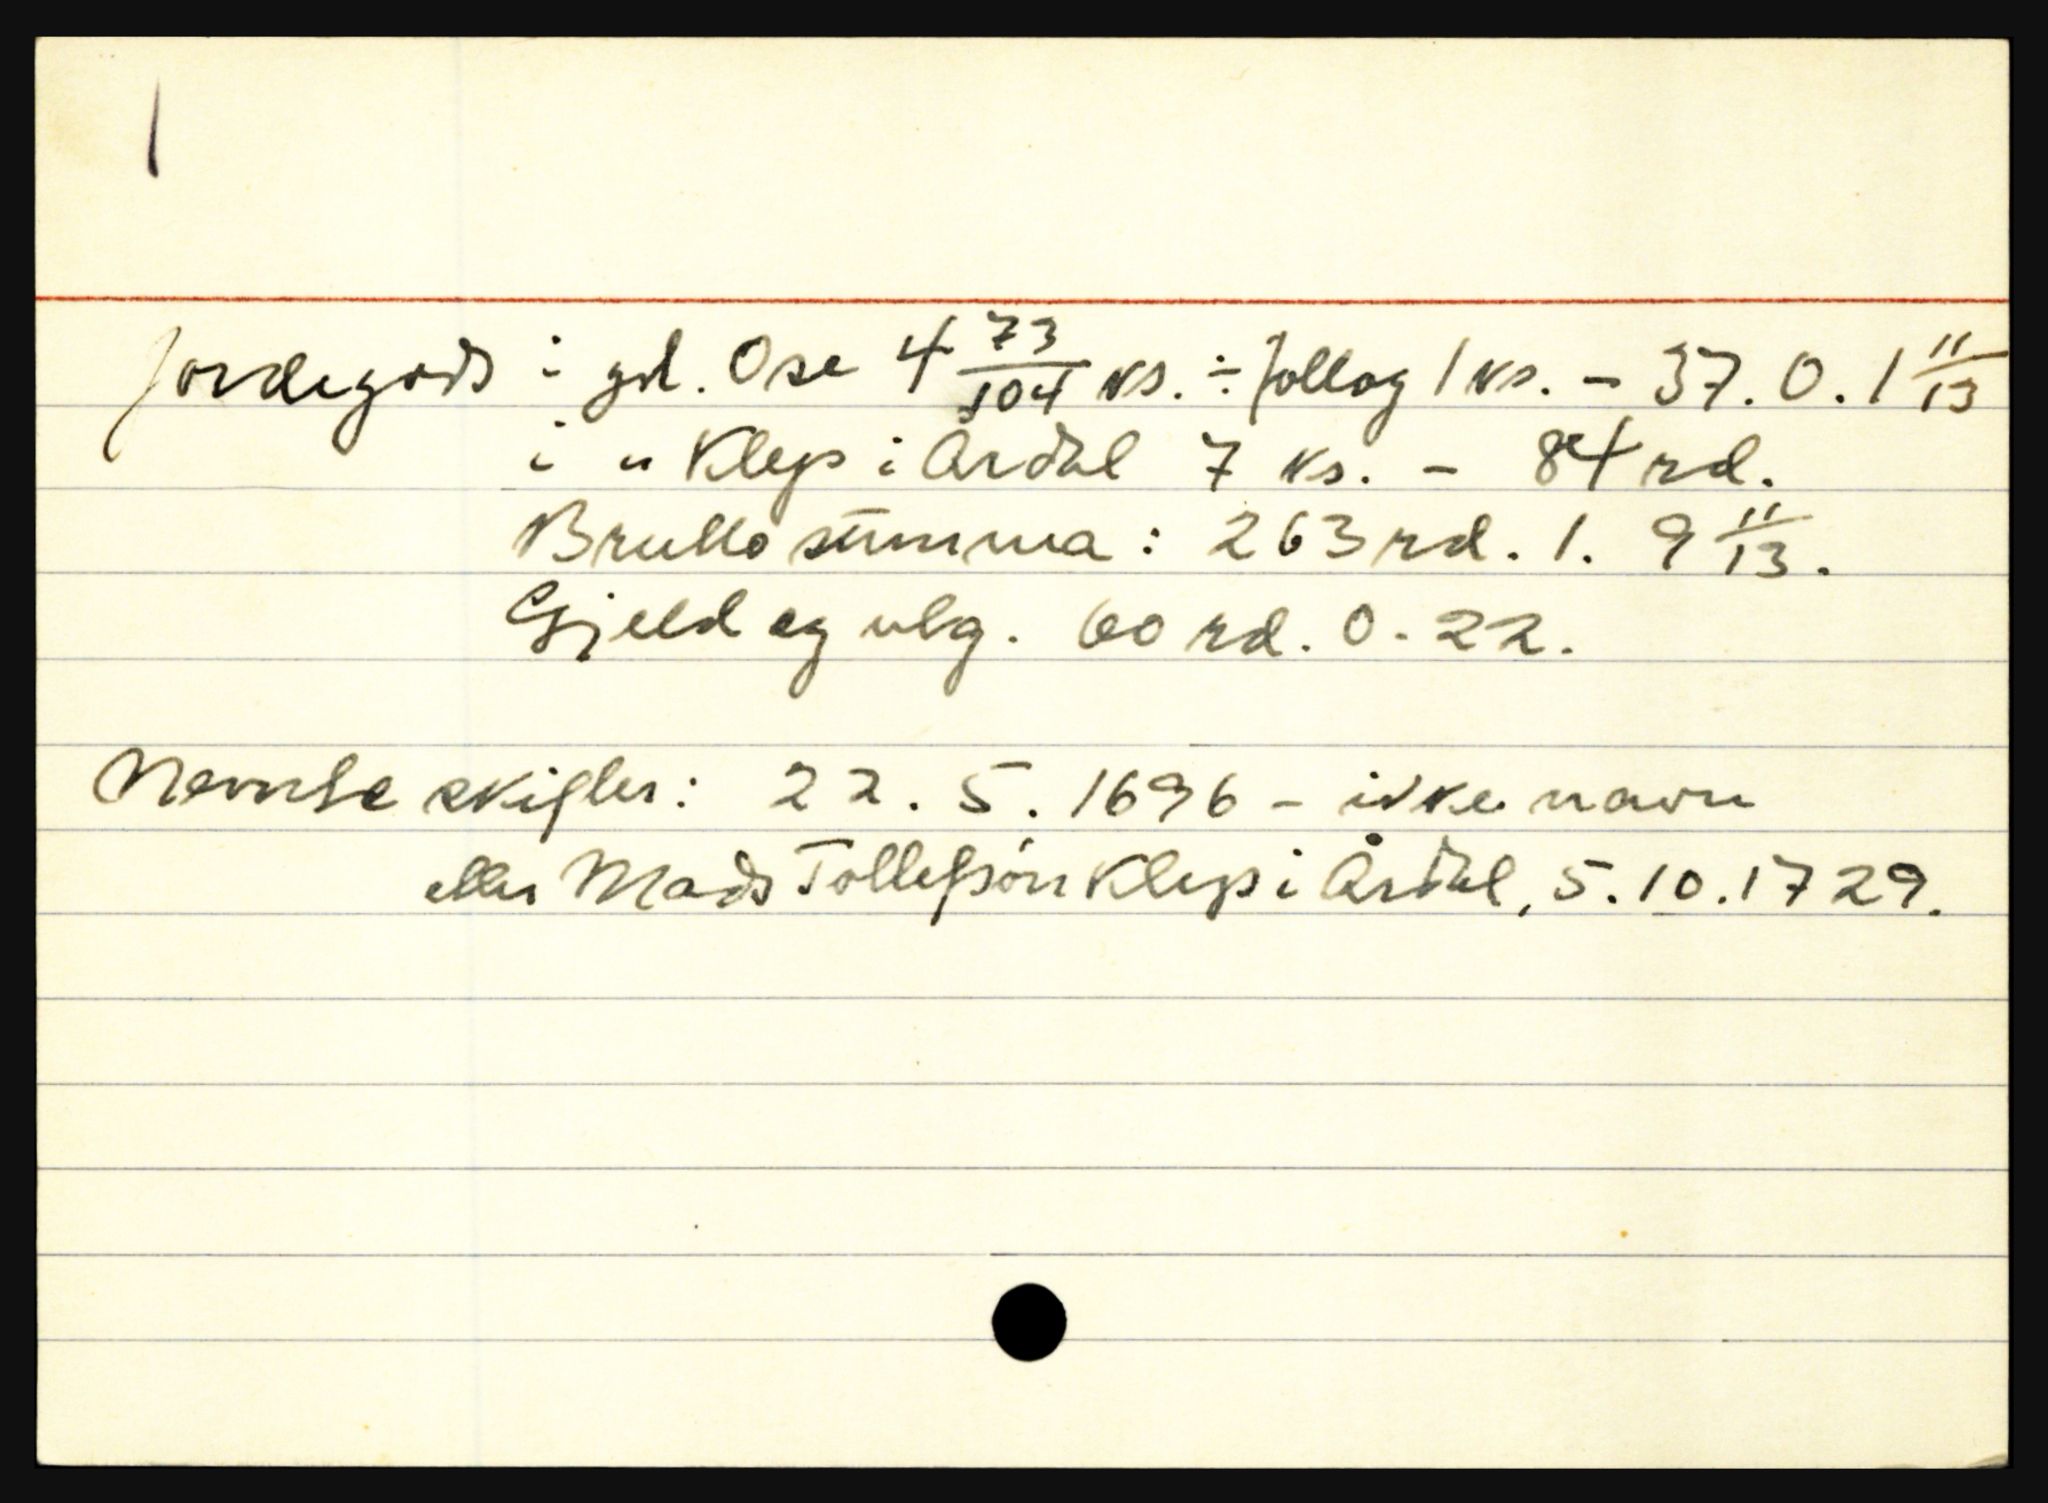 Jordegods i gd. Ose 4 73/104 ks. ÷ follog 1 ks. - 37. 0. 1 11/13
i " Klep i Årdal 7 ks. - 84 rd.
Brutto summa: 263 rd. 1. 9 11/13.
Gjeld og utg. 60 rd. 0. 22.
Nevnte skifter: 22. 5. 1696 - ikke navn
etter Mads Tollefsøn Klep i Årdal, 5.10.1729.